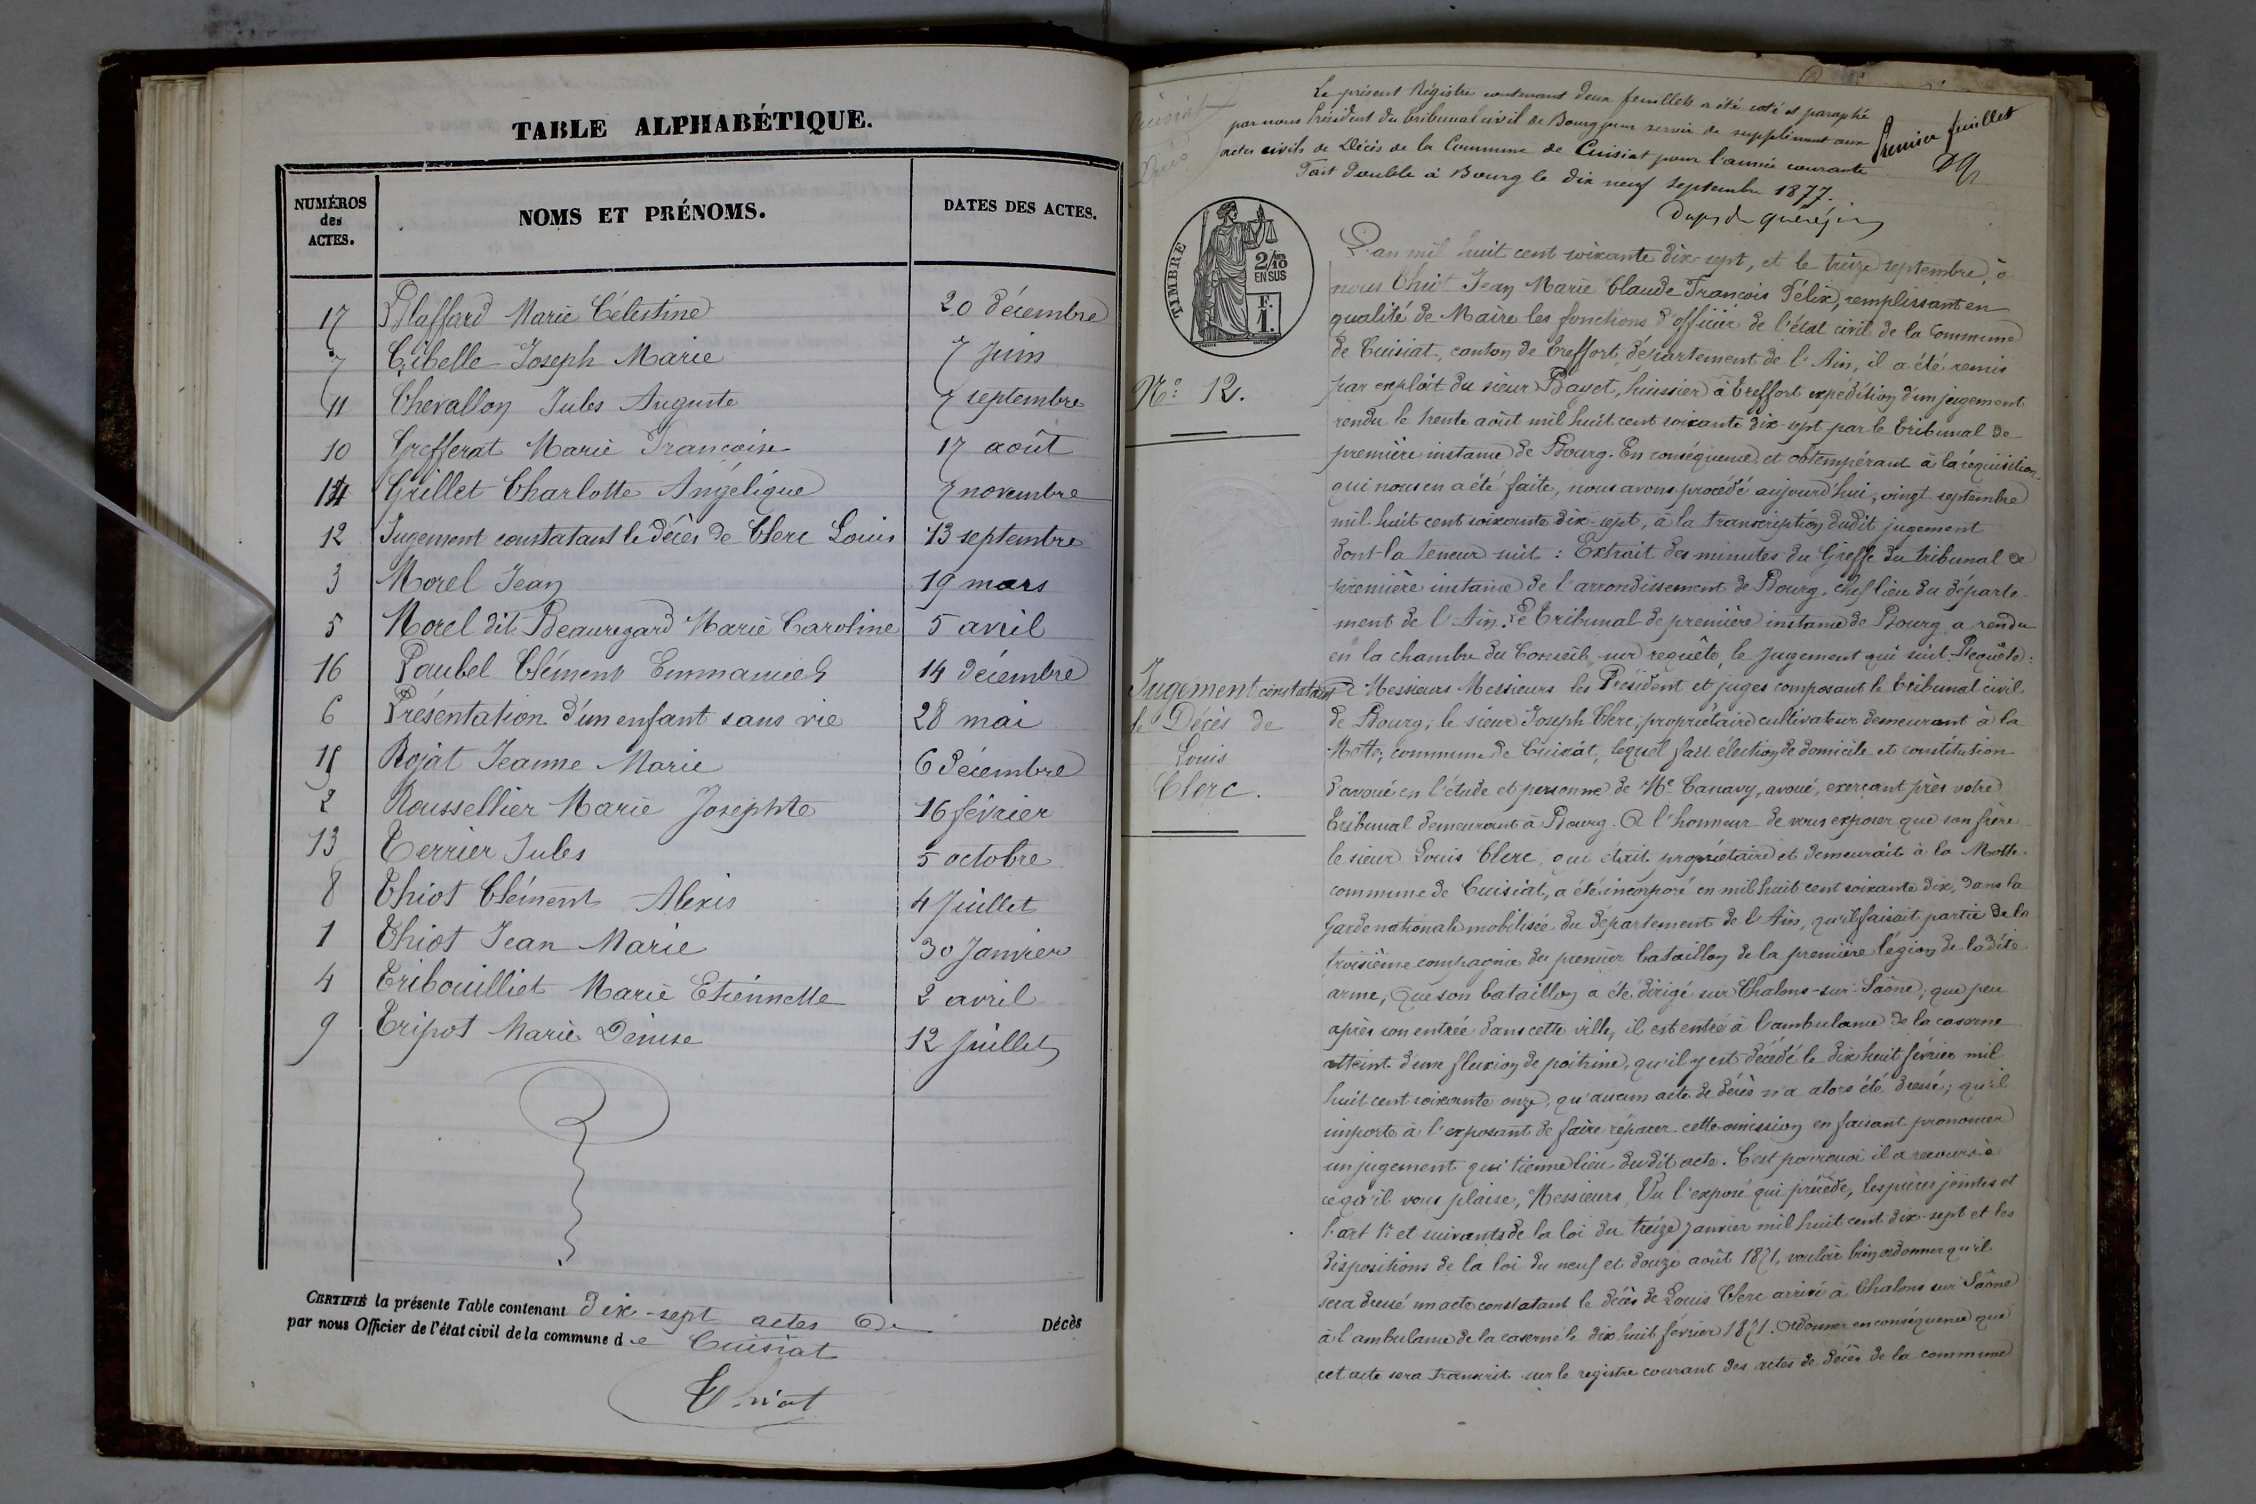 TABLE ALPHABÉTIQUE.
NUMÉROS des ACTES. NOMS ET PRÉNOMS. DATES DES ACTES.
17 Blaffard Marie Célestine 20 décembre
7 Cibelle Joseph Marie 7 juin
11 Chevallon Jules Auguste 7 septembre
10 Grefferat Marie Françoise 17 août
14 Grillet Charlotte Angélique 7 novembre
12 Jugement constatant le décès de Clerc Louis 13 septembre
3 Morel Jean 19 mars
5 Morel dit Beauregard Marie Caroline 5 avril
16 Paubel Clément Emmanuel 14 décembre
6 Présentation d'un enfant sans vie 28 mai
15 Rojat Jeanne Marie 6 décembre
2 Roussellier Marie Josephte 16 février
13 Terrier Jules 5 octobre
8 Thiot Clément Alexis 4 Juillet
1 Thiot Jean Marie 30 Janvier
4 Tribouilliet Marie Etiennette 2 avril
9 Tripot Marie Denise 12 Juillet
CERTIFIÉ la présente Table contenant dix-sept actes de Décès
par nous Officier de l'état civil de la commune de Cuisiat
Thiot
Cuisiat
Décès
Le présent Régistre contenant deux feuillets a été coté et paraphé
par nous Président du tribunal civil de Bourg pour servir de supplément aux
actes civils de Décès de la Commune de Cuisiat pour l'année courante
Fait double à Bourg le dix neuf septembre 1877.
Premier feuillet
TIMBRE
2/10 EN SUS
F. 1.
L'an mil huit cent soixante dix-sept, et le treize septembre, à
nous Thiot Jean Marie Claude François Félix, remplissant en
qualité de Maire les fonctions d'officier de l'état civil de la Commune
de Cuisiat, canton de Treffort, département de l'Ain, il a été remis
No 12.
par exploit du sieur Bayet, huissier à Treffort expédition d'un jugement
rendu le trente août mil huit cent soixante dix-sept par le tribunal de
première instance de Bourg. En conséquence et obtempérant à la réquisition
qui nous en a été faite, nous avons procédé aujourd'hui, vingt septembre
mil huit cent soixante dix-sept, à la transcription dudit jugement
dont la teneur suit : Extrait des minutes du Greffe du tribunal de
première instance de l'arrondissement de Bourg, chef lieu du départe-
ment de l'Ain. Le Tribunal de première instance de Bourg a rendu
en la chambre du Conseil, sur requête, le Jugement qui suit. Requête :
Jugement constatant
le Décès de
Louis
Clerc.
A Messieurs Messieurs les Président et juges composant le tribunal civil
de Bourg ; le sieur Joseph Clerc, propriétaire cultivateur demeurant à la
Motte, commune de Cuisiat, lequel fait élection de domicile et constitution
d'avoué en l'étude et personne de Me Canavy, avoué, exerçant près votre
Tribunal demeurant à Bourg. A l'honneur de vous exposer que son frère
le sieur Louis Clerc, qui était propriétaire et demeurait à la Motte
commune de Cuisiat, a été incorporé en mil huit cent soixante dix, dans la
Garde nationale mobilisée du département de l'Ain, qu'il faisait partie de la
troisième compagnie du premier bataillon de la première légion de ladite
arme, Que son bataillon a été dirigé sur Chalons-sur-Saône, que peu
après son entrée dans cette ville, il est entré à l'ambulance de la caserne
atteint d'une fluxion de poitrine, qu'il y est décédé le dix huit février mil
huit cent soixante onze, qu'aucun acte de décès n'a alors été dressé ; qu'il
importe à l'exposant de faire réparer cette omission en faisant prononcer
un jugement qui tienne lieu dudit acte. C'est pourquoi il a recours à
ce qu'il vous plaise, Messieurs, Vu l'exposé qui précède, les pièces jointes et
l'art 1er et suivants de la loi du treize janvier mil huit cent dix-sept et les
dispositions de la loi du neuf et douze août 1871, vouloir bien ordonner qu'il
sera dressé un acte constatant le décès de Louis Clerc arrivé à Chalons sur Saône
à l'ambulance de la caserne le dix huit février 1871. Ordonner en conséquence que
cet acte sera transcrit sur le registre courant des actes de décès de la commune